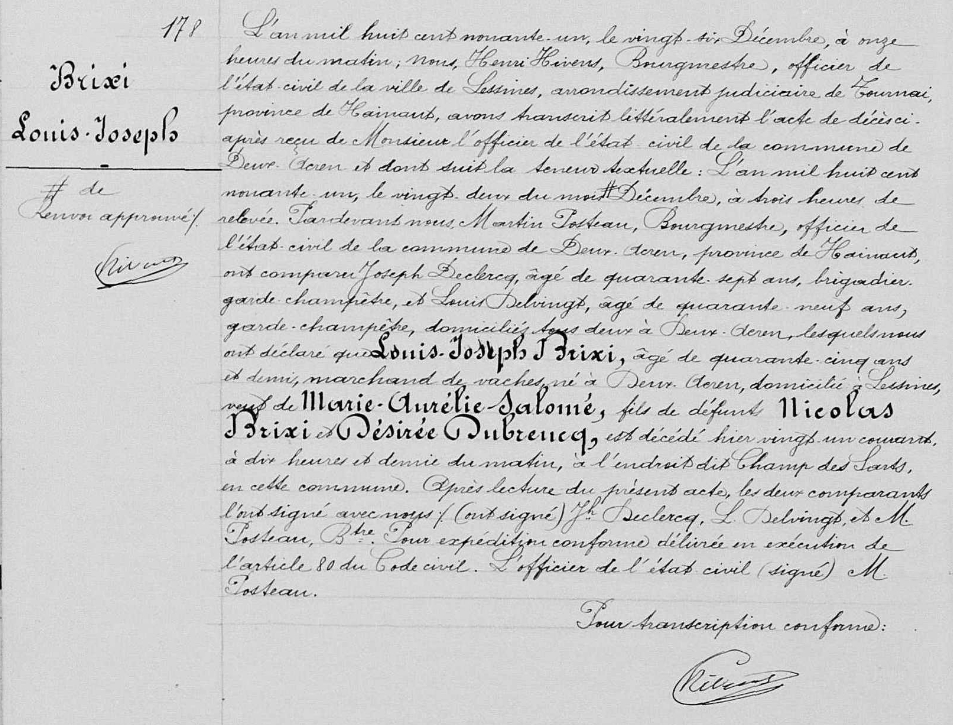 178
Brixi
Louis-Joseph
# de
Renvoi approuvé /.
L'an mil huit cent nonante-un, le vingt-six Décembre, à onze
heures du matin; nous, Henri Hivens, Bourgmestre, officier de
l'état-civil de la ville de Lessines, arrondissement judiciaire de Tournai,
province de Hainaut, avons transcrit littéralement l'acte de décès ci-
après reçu de Monsieur l'officier de l'état civil de la commune de
Deux-Acren et dont suit la teneur textuelle: L'an mil huit cent
nonante-un, le vingt-deux du mois # Décembre, à trois heures de
relevée. Pardevant nous Martin Posteau, Bourgmestre, officier de
l'état-civil de la commune de Deux-Acren, province de Hainaut,
ont comparu Joseph Declercq, âgé de quarante-sept ans, brigadier-
garde champêtre, et Louis Delvingt, âgé de quarante-neuf ans,
garde-champêtre, domiciliés tous deux à Deux-Acren, lesquels nous
ont déclaré que Louis-Joseph Brixi, âgé de quarante-cinq ans
et demi, marchand de vaches, né à Deux-Acren, domicilié à Lessines,
veuf de Marie-Aurélie-Salomé, fils de défunts Nicolas
Brixi et Désirée Dubreucq, est décédé hier vingt-un courant,
à dix heures et demie du matin, à l'endroit dit Champ des Sarts,
en cette commune. Après lecture du présent acte, les deux comparants
l'ont signé avec nous /. (ont signé) Jh Declercq, L. Delvingt, et M.
Posteau, Btre. Pour expédition conforme délivrée en exécution de
l'article 80 du Code civil. L'officier de l'état-civil (signé) M.
Posteau.
Pour transcription conforme: